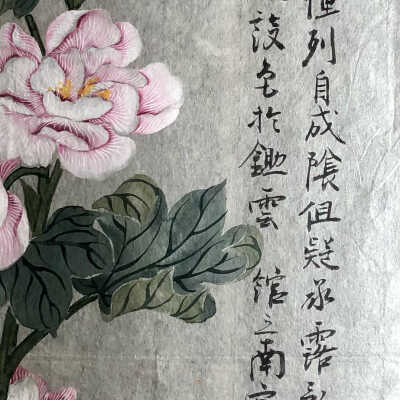 列自成陰但疑承露
設色於鋤雲館之南